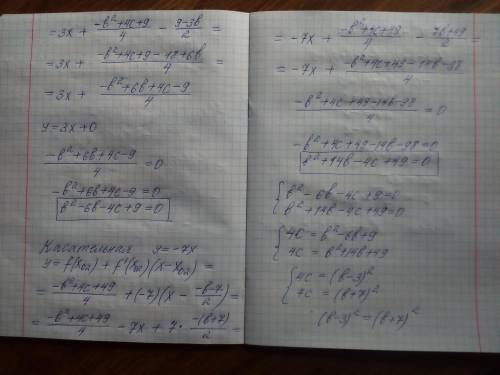 = 3x + (-b²+4c+9)/4 - (9-3b)/2 =
= 3x + (-b²+4c+9-18+6b)/4 =
= 3x + (-b²+6b+4c-9)/4
y=3x+0
(-b²+6b+4c-9)/4 = 0
-b²+6b+4c-9=0
b²-6b-4c+9=0
Касательная y=-7x
y=f(x₀₂)+f'(x₀₂)(x-x₀₂)=
= (-b²+4c+49)/4 + (-7)(x - (-b-7)/2) =
= (-b²+4c+49)/4 - 7x + 7·(-(b+7))/2 =
= -7x + (-b²+4c+49)/4 - (7b+49)/2 =
= -7x + (-b²+4c+49-14b-98)/4
(-b²+4c+49-14b-98)/4 = 0
-b²+4c+49-14b-98=0
b²+14b-4c+49=0
{b²-6b-4c+9=0
b²+14b-4c+49=0
{4c=b²-6b+9
4c=b²+14b+49
{4c=(b-3)²
4c=(b+7)²
(b-3)²=(b+7)²